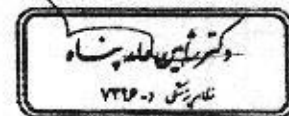 دکتر شاهین علی پناه
نظام پزشکی د-۷۳۹۶